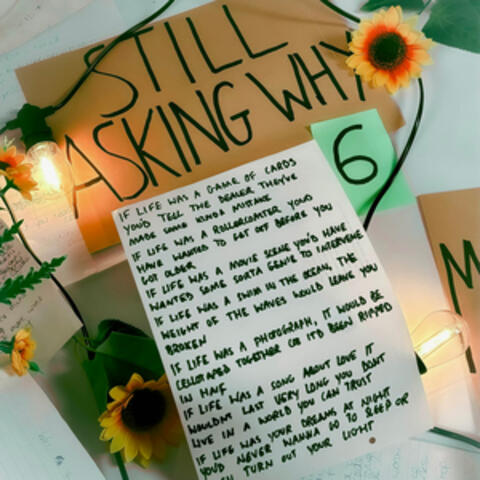 STILL
ASKING WHY
6
IF LIFE WAS A GAME OF CARDS
YOU'D TELL THE DEALER THEY'VE
MADE SOME KINDA MISTAKE
IF LIFE WAS A ROLLERCOASTER YOUD
HAVE WANTED TO GET OFF BEFORE YOU
GOT OLDER
IF LIFE WAS A MOVIE SCENE YOU'D HAVE
WANTED SOME SORTA GENIE TO INTERVENE
IF LIFE WAS A SWIM IN THE OCEAN, THE
WEIGHT OF THE WAVES WOULD LEAVE YOU
BROKEN
IF LIFE WAS A PHOTOGRAPH, IT WOULD BE
CELLOTAPED TOGETHER COS IT'D BEEN RIPPED
IN HALF
IF LIFE WAS A SONG ABOUT LOVE IT
WOULDNT LAST VERY LONG YOU DON'T
LIVE IN A WORLD YOU CAN TRUST
IF LIFE WAS YOUR DREAMS AT NIGHT
YOU'D NEVER WANNA GO TO SLEEP OR
TURN OUT YOUR LIGHT
M